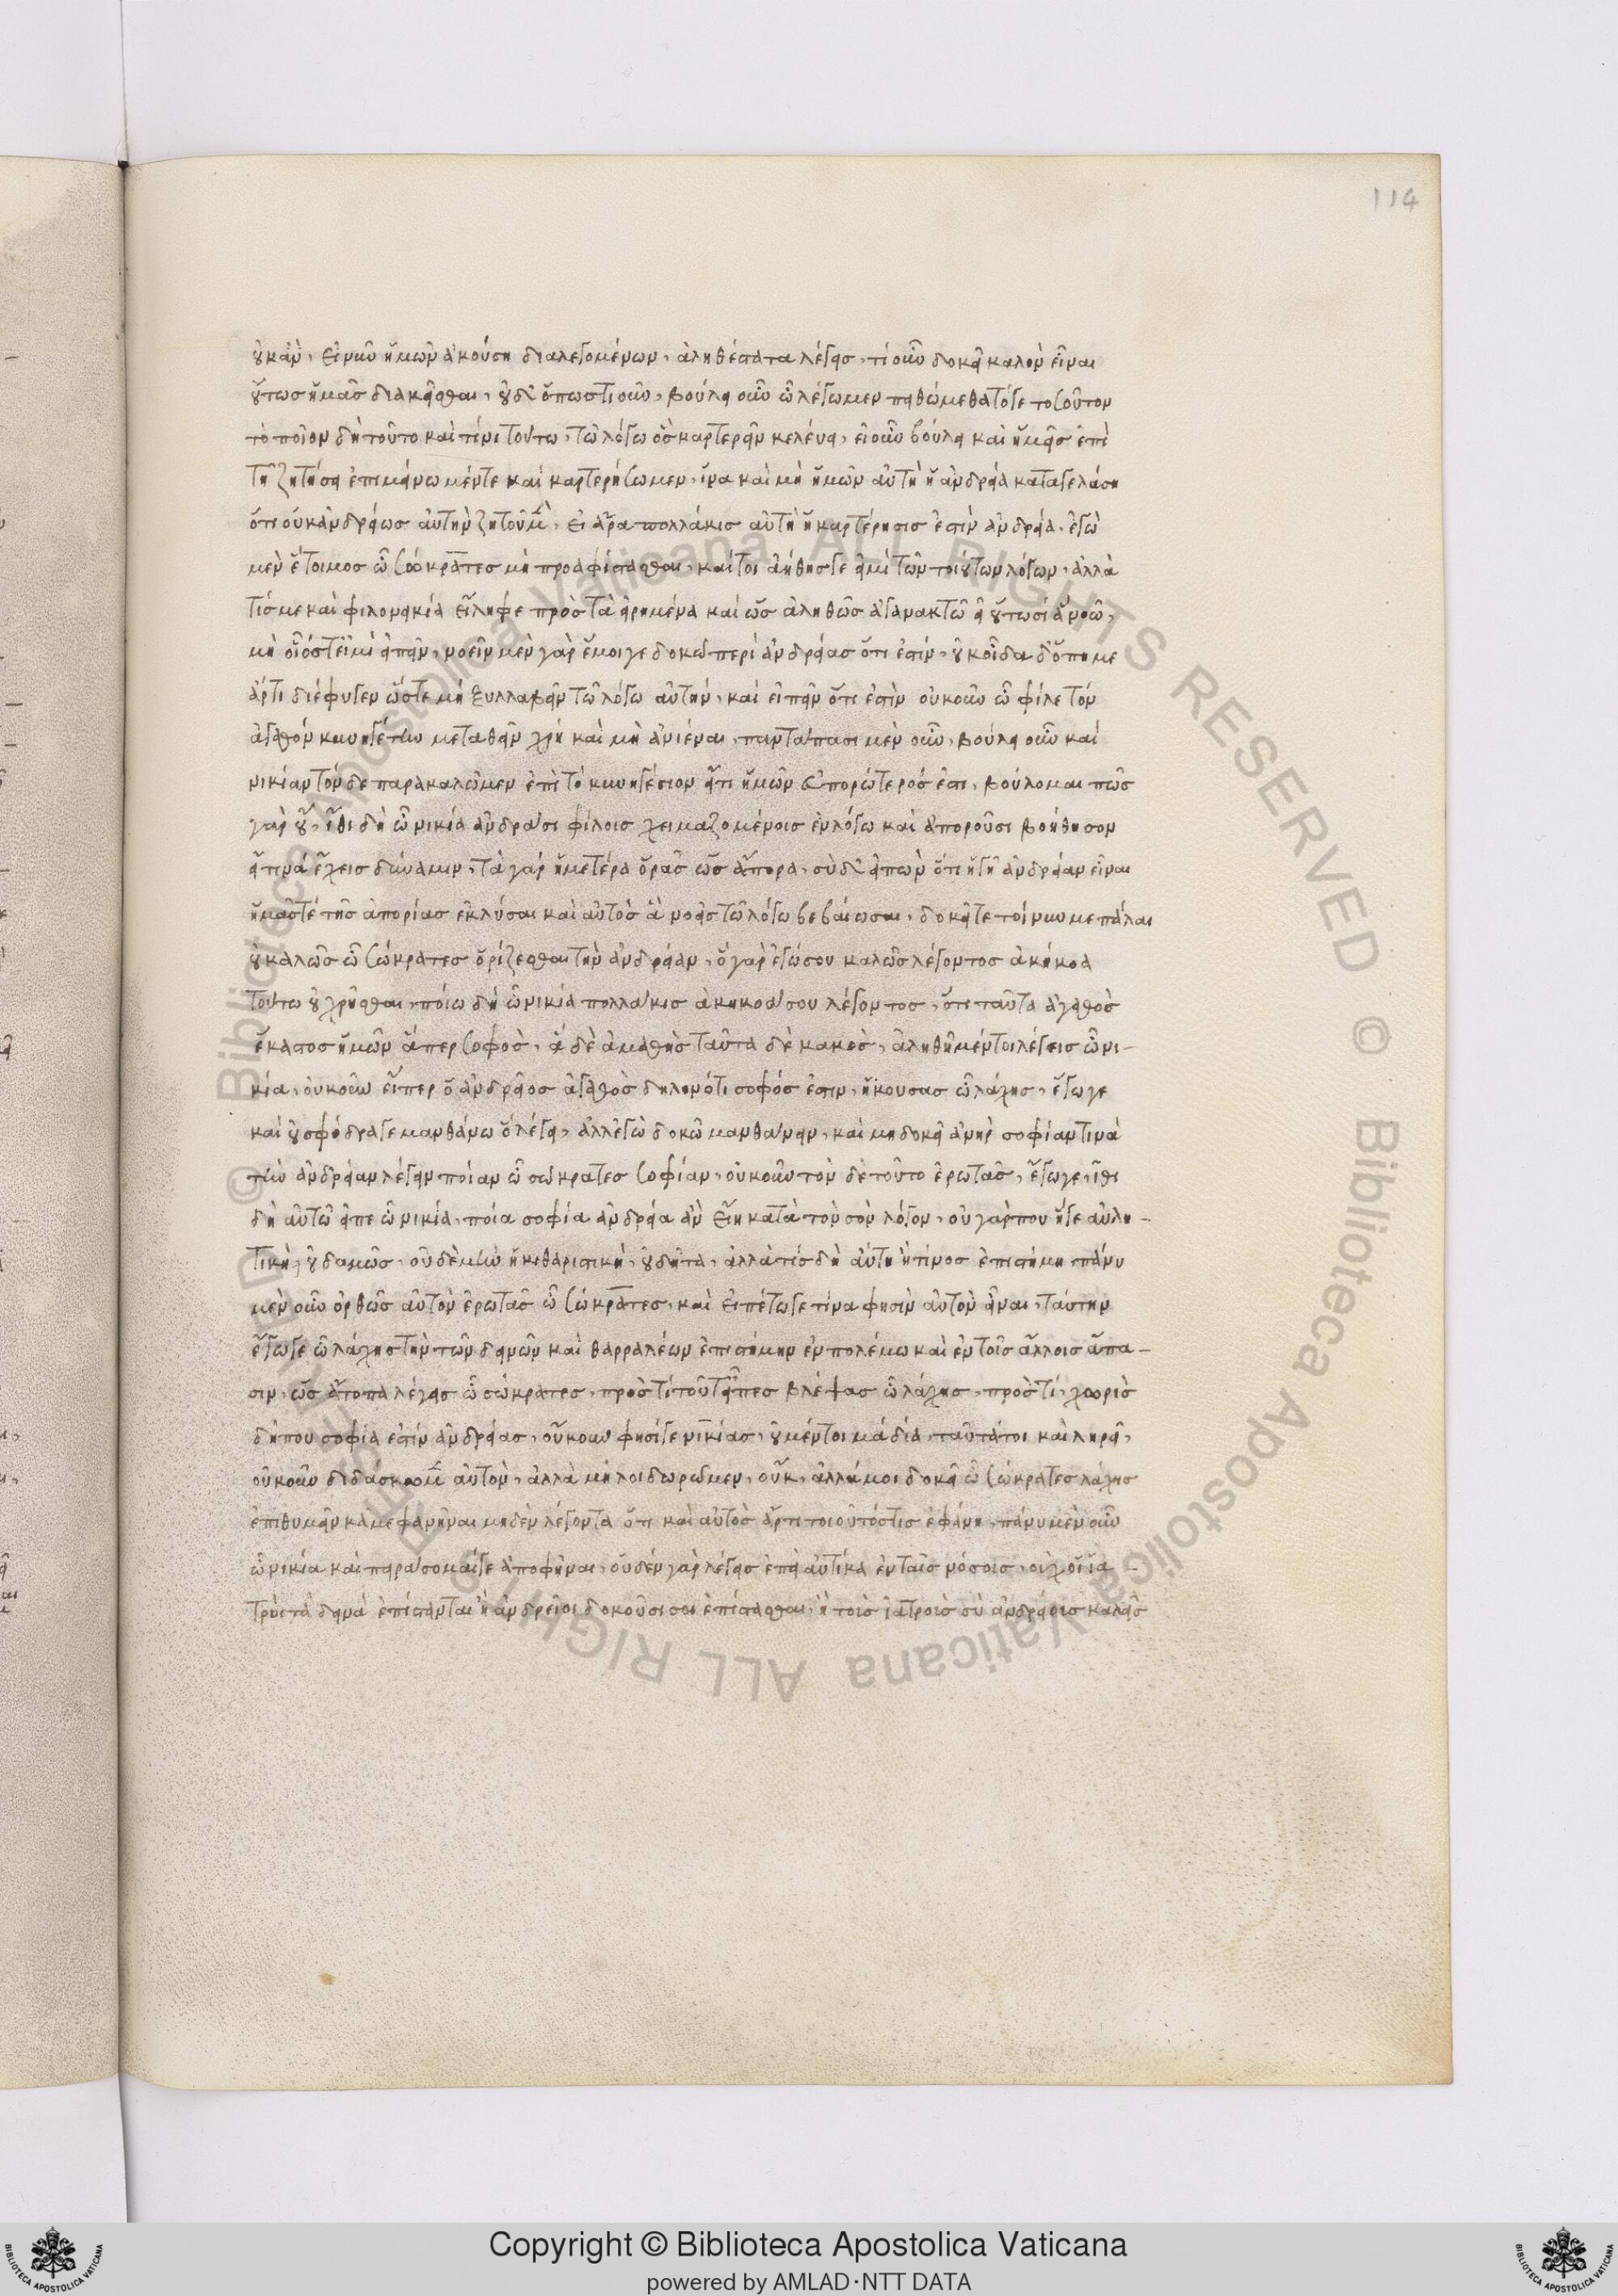 114
οὐκ ἂν, εἴ νιν ἡμῶν ἀκούση διαλεγομένων, ἀληθέστατα λέγεις, τί οὖν δοκεῖ καλὸν εἶναι
οὕτως ἡμᾶς διακεῖσθαι, οὐδ' ὁπωστιοῦν, βούλει οὖν ὧ λέγωμεν πειθώμεθα τόγε τοσοῦτον
τὸ ποῖον δὴ τοῦτο καὶ τίνι τούτω, τῶ λόγω ὃς καρτερεῖν κελέυει, εἰ οὖν βούλει καὶ ἡμεῖς ἐπὶ
τῆ ζητήσει ἐπιμείνωμέν τε καὶ καρτερήσωμεν, ἵνα καὶ μὴ ἡμῶν αὐτὴ ἡ ἀνδρεία καταγελάση
ὅτι οὐκ ἀνδρείως αὐτὴν ζητοῦμεν, εἰ ἄρα πολλάκις αὐτὴ ἡ καρτέρησις ἐστὶν ἀνδρεία, ἐγὼ
μὲν ἕτοιμος ὦ σώκρατες μὴ προαφίστασθαι, καίτοι ἀήθης γε εἰμὶ τῶν τοιούτων λόγων, ἀλλὰ
τίς με καὶ φιλονεικία εἴληφε πρὸς τὰ εἰρημένα καὶ ὡς ἀληθῶς ἀγανακτῶ εἰ οὑτωσὶ ἃ νοῶ,
μὴ οἷός τ' εἰμὶ εἰπεῖν, νοεῖν μὲν γὰρ ἔμοιγε δοκῶ περὶ ἀνδρείας ὅτι ἐστίν, οὐκ οἶδα δ' ὅπη με
ἄρτι διέφυγεν ὥστε μὴ ξυλλαβεῖν τῶ λόγω αὐτήν, καὶ εἰπεῖν ὅτι ἐστὶν οὐκοῦν ὦ φίλε τὸν
ἀγαθὸν κυνηγέτην μεταθεῖν χρὴ καὶ μὴ ἀνιέναι, παντάπασι μὲν οὖν, βούλει οὖν καὶ
νικίαν τόνδε παρακαλῶμεν ἐπὶ τὸ κυνηγέσιον εἴ τι ἡμῶν εὐπορώτερός ἐστι, βούλομαι πῶς
γὰρ οὔ, ἴθι δὴ ὦ νικία ἀνδράσι φίλοις χειμαζομένοις ἐν λόγω καὶ ἀποροῦσι βοήθησον
εἴ τινα ἔχεις δύναμιν, τὰ γὰρ ἡμετέρα ὁρᾶς ὡς ἄπορα, σὺ δ' εἰπὼν ὅτι ἡγῆ ἀνδρείαν εἶναι
ἡμᾶς τε τῆς ἀπορίας ἐκλύσαι καὶ αὐτὸς ἃ νοεῖς τῶ λόγω βεβαίωσαι, δοκεῖτε τοίνυν με πάλαι
οὐ καλῶς ὦ σώκρατες ὁρίζεσθαι τὴν ἀνδρείαν, ὃ γὰρ ἐγώ σου καλῶς λέγοντος ἀκήκοα
τούτω οὐ χρῆσθαι, ποίω δὴ ὦ νικία πολλάκις ἀκήκοά σου λέγοντος, ὅτι ταῦτα ἀγαθὸς
ἕκαστος ἡμῶν ἅπερ σοφὸς, ἃ δὲ ἀμαθὴς ταῦτα δὲ κακὸς, ἀληθῆ μέντοι λέγεις ὦ νι-
κία, οὐκοῦν εἴπερ ὁ ἀνδρεῖος ἀγαθὸς δηλονότι σοφός ἐστιν, ἤκουσας ὦ λάχης, ἔγωγε
καὶ οὐ σφόδρα γε μανθάνω ὃ λέγει, ἀλλ' ἐγὼ δοκῶ μανθάνειν, καὶ μη δοκεῖ ἁνὴρ σοφίαν τινὰ
τὴν ἀνδρείαν λέγειν ποίαν ὦ σώκρατες σοφίαν, οὐκοῦν τὸν δε τοῦτο ἐρωτᾶς, ἔγωγε, ἴθι
δὴ αὐτῶ εἰπε ὦ νικία, ποία σοφία ἀνδρεία ἂν εἴη κατὰ τὸν σὸν λόγον, οὐ γάρ που ἥγε αὐλη-
τικὴ, οὐδαμῶς, οὐδὲ μὴν ἡ κιθαριστική, οὐ δῆτα, ἀλλὰ τίς δὴ αὕτη ἢ τίνος ἐπιστήμη πάνυ
μὲν οὖν ὀρθῶς αὐτὸν ἐρωτᾶς ὦ σώκρατες, καὶ εἰπέτω γε τίνα φησὶν αὐτὸν εἶναι, ταύτην
ἔγωγε ὦ λάχης τὴν τῶν δεινῶν καὶ θαρραλέων ἐπιστήμην ἐν πολέμω καὶ ἐν τοῖς ἄλλοις ἅπα-
σιν, ὡς ἄτοπα λέγεις ὦ σώκρατες, πρὸς τί τοῦτ' εἶπες βλέψας ὦ λάχης, πρὸς τί, χωρὶς
δήπου σοφία ἐστὶν ἀνδρείας, οὔκουν φησί γε νικίας, οὐ μέντοι μὰ δία, ταῦτά τοι καὶ ληρεῖ,
οὐκοῦν διδάσκωμεν αὐτὸν, ἀλλὰ μὴ λοιδωρῶμεν, οὔκ, ἀλλά μοι δοκεῖ ὦ σώκρατες λάχης
ἐπιθυμεῖν κἀμὲ φανῆναι μηδὲν λέγοντα ὅτι καὶ αὐτὸς ἄρτι τοιοῦτός τις ἐφάνη, πάνυ μὲν οὖν
ὦ νικία καὶ πειράσομαί γε ἀποφῆναι, οὐδὲν γὰρ λέγεις ἐπεὶ αὐτίκα ἐν ταῖς νόσοις, οὐχ οἱ ἰα-
τροὶ τὰ δεινὰ ἐπίστανται ἢ ἀνδρεῖοι δοκοῦσι σοι ἐπίστασθαι, ἢ τοὺς ἰατροὺς σὺ ἀνδρείους καλεῖς
Copyright © Biblioteca Apostolica Vaticana
powered by AMLAD·NTT DATA